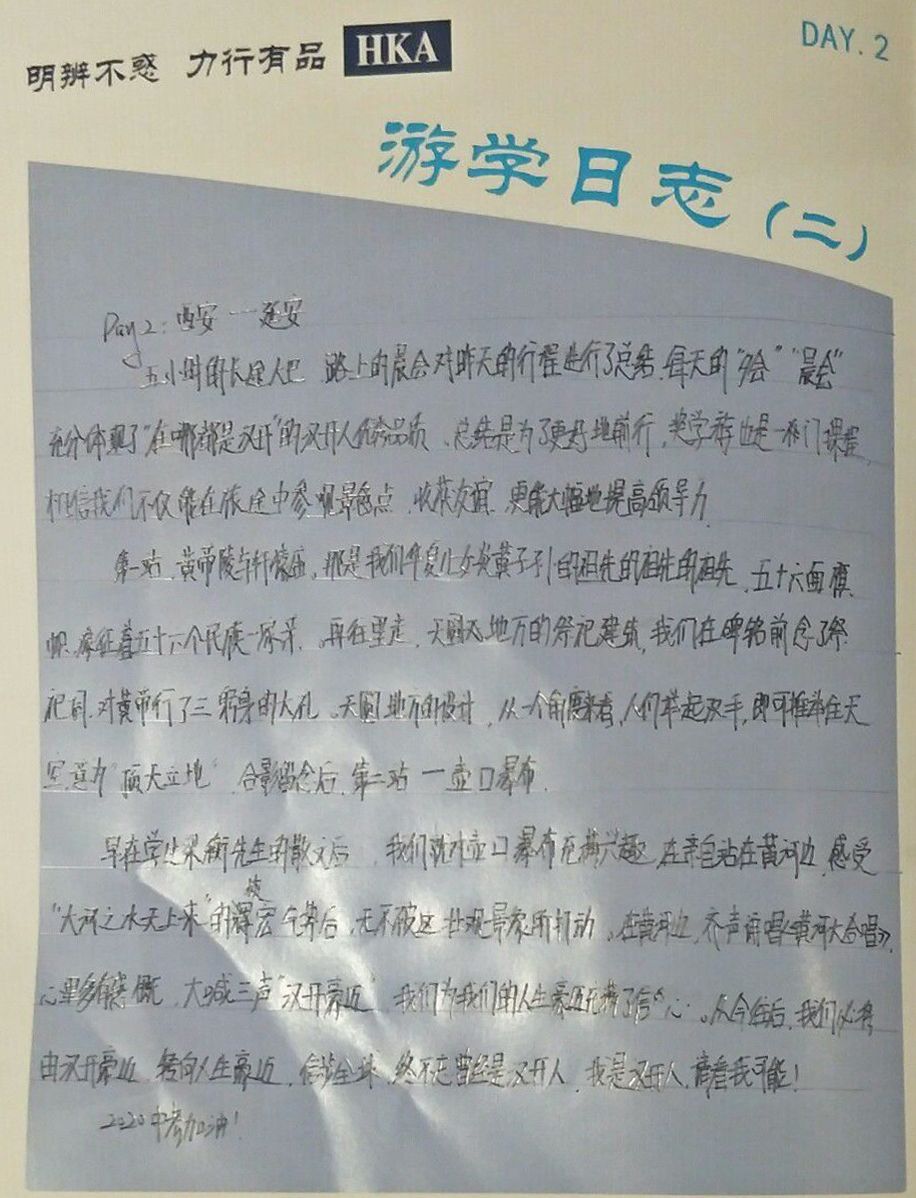 明辨不惑 力行有品 HKA
DAY.2
游学日志(二)
Day2:西安一延安
五小时的长途大巴 路上的晨会对昨天的行程进行了总结.每天的"夕会""晨会"
充分体现了"在哪都是汉开"的汉开人优秀品质、总结是为了更好地前行,奖学游也是一门课程,
相信我们不仅能在旅途中参观景点、收获友谊、更能大幅地提高领导力
第一站,黄帝陵轩辕庙,那是我们华夏儿女炎黄子孙的祖先的祖先的祖先、五十六面旗
帜,象征着五十六个民族一家亲.再往里走,天圆地方的祭祀建筑,我们在碑铭前念了祭
祀词.对黄帝行了三鞠躬的大礼。天圆地方的设计,从一个角度来看,人们举起双手,即可推举住天
意为"顶天立地"合影留念后,第二站一壶口瀑布.
早在学过梁衡先生的散文后,我们就对壶口瀑布充满兴趣,在亲自站在黄河边,感受
"大河之水天上来"的恢宏气势后,无不被这壮观景象所打动。在黄河边,齐声诵唱《黄河大合唱》,
心里多有感慨,大喊三声"汉开豪迈"我们为我们的人生豪迈充满了信心。从今往后,我们必将
由汉开豪迈 转向人生豪迈,信步全球,终不忘曾经是汉开人,我是汉开人,请看我可能!
2020中考加油!